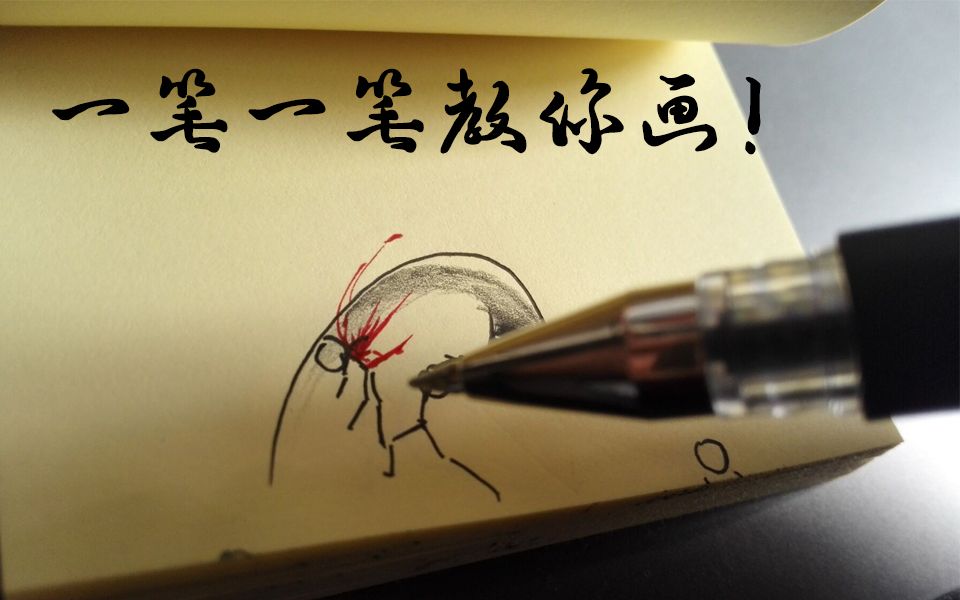 一笔一笔教你画!